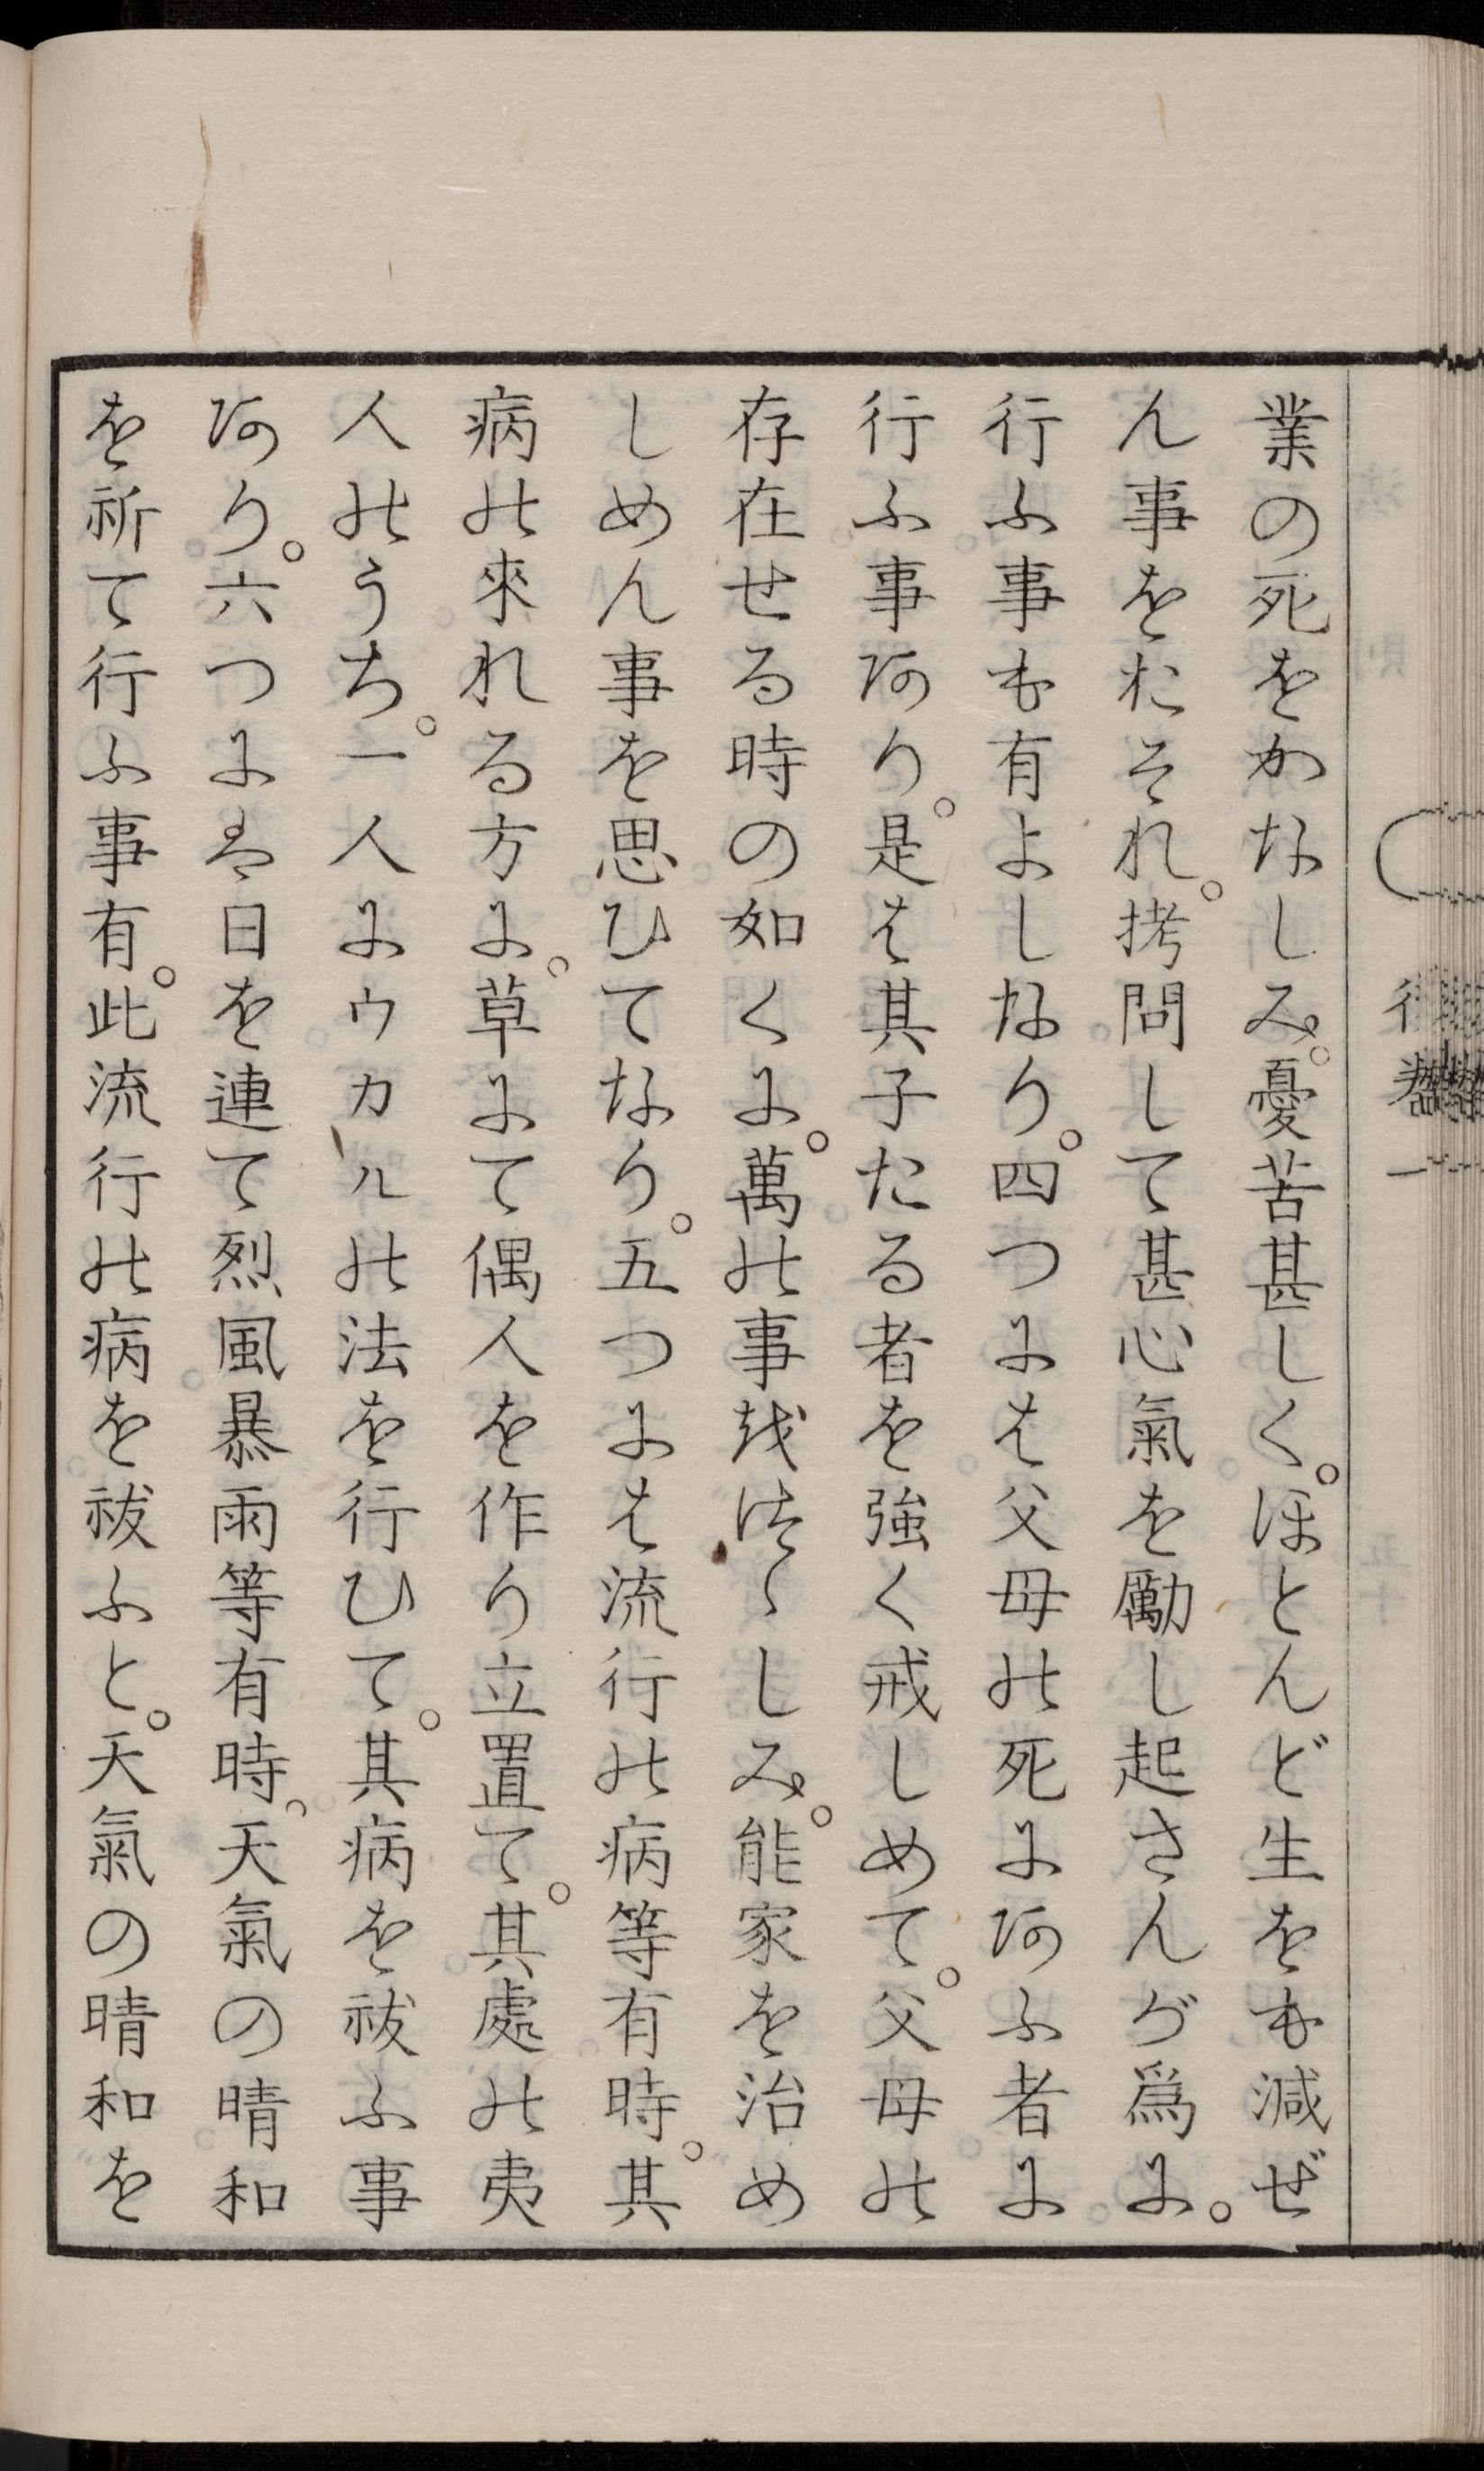 業の死をかなしみ。憂苦甚しく。ほとんど生をも減ぜ
ん事をおそれ。拷問して甚心氣を勵し起さんが爲に。
行ふ事も有よしなり。四つには父母の死にあふ者に
行ふ事あり。是は其子たる者を強く戒しめて。父母の
存在せる時の如くに。萬の事をつゝしみ。能家を治め
しめん事を思ひてなり。五つには流行の病等有時。其
病の來れる方に。草にて偶人を作り立置て。其處の夷
人のうち。一人にウカルの法を行ひて。其病を祓ふ事
あり。六つには日を連て烈風暴雨等有時。天氣の晴和
を祈て行ふ事有。此流行の病を祓ふと。天氣の晴和を